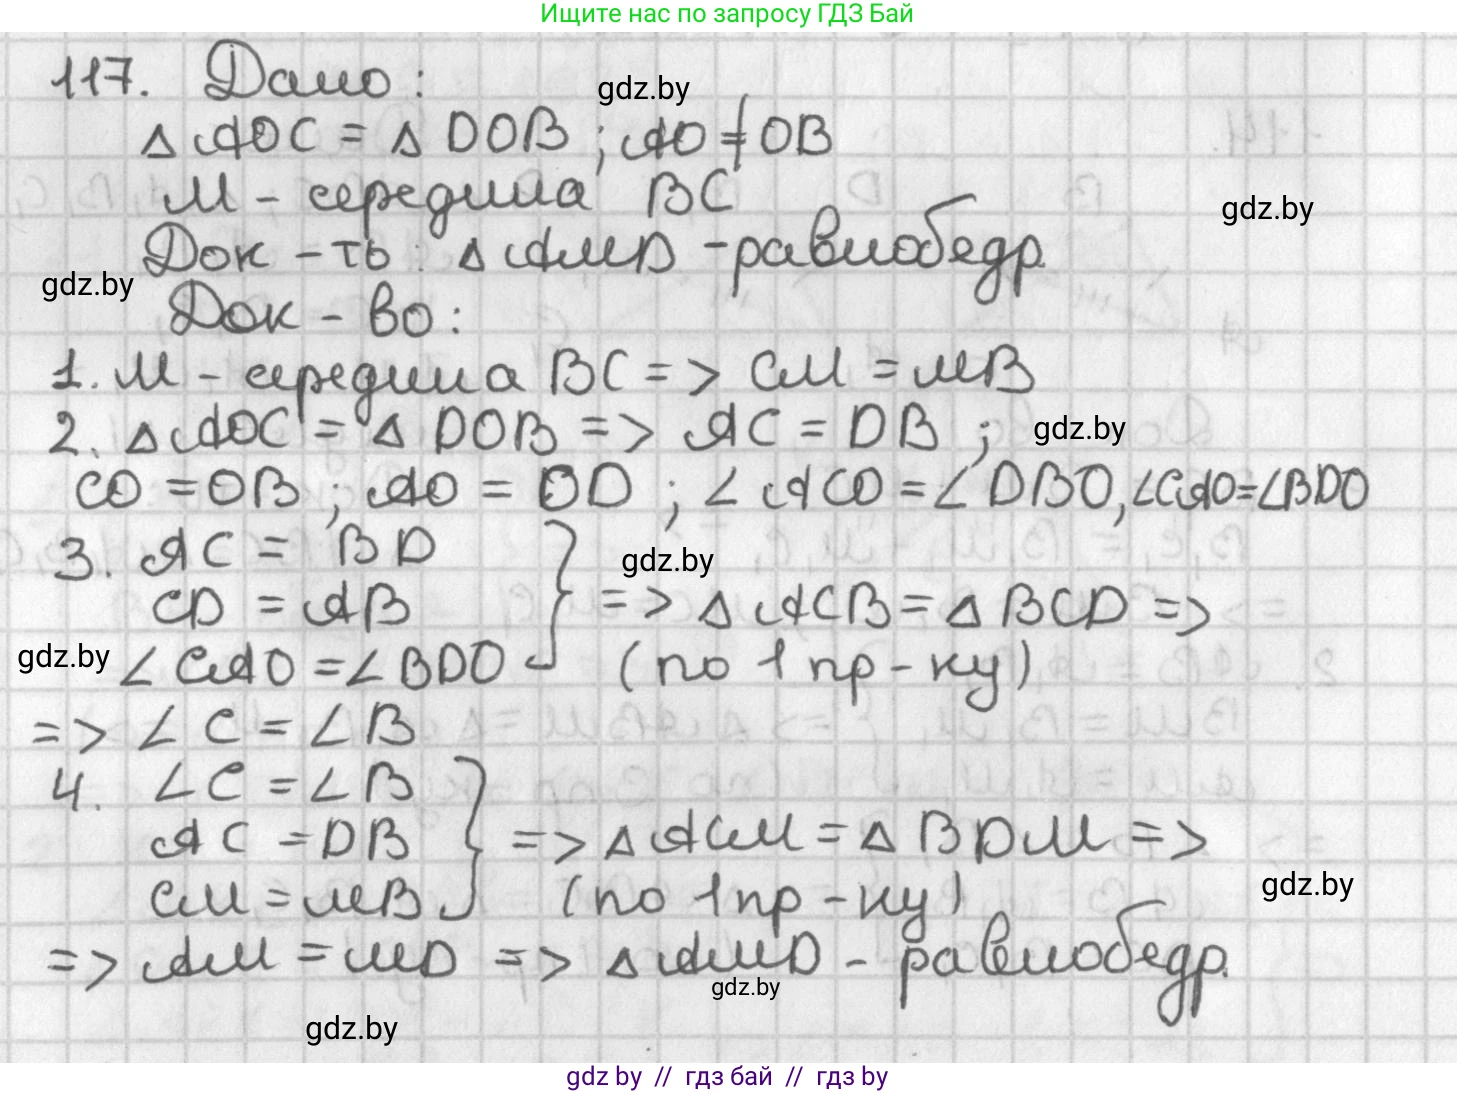 Ищите нас по запросу ГДЗ Бай
117. Дано:
gdz.by
△AOC = △DOB; AO ≠ OB
M - середина BC
gdz.by
Док-ть: △AMD - равнобедр.
gdz.by
Док-во:
1. M - середина BC => CM = MB
2. △AOC = △DOB => AC = DB;
gdz.by
CO = OB; AO = OD; ∠ACO = ∠DBO, ∠CAO = ∠BDO
3. AC = BD
gdz.by
CD = AB } => △ACB = △BCD =>
gdz.by
∠CAO = ∠BDO (по 1 пр-ку)
=> ∠C = ∠B
4. ∠C = ∠B
AC = DB } => △ACM = △BDM =>
gdz.by
CM = MB (по 1 пр-ку)
=> AM = MD => △AMD - равнобедр.
gdz.by
gdz.by
gdz by // гдз бай // гдз by